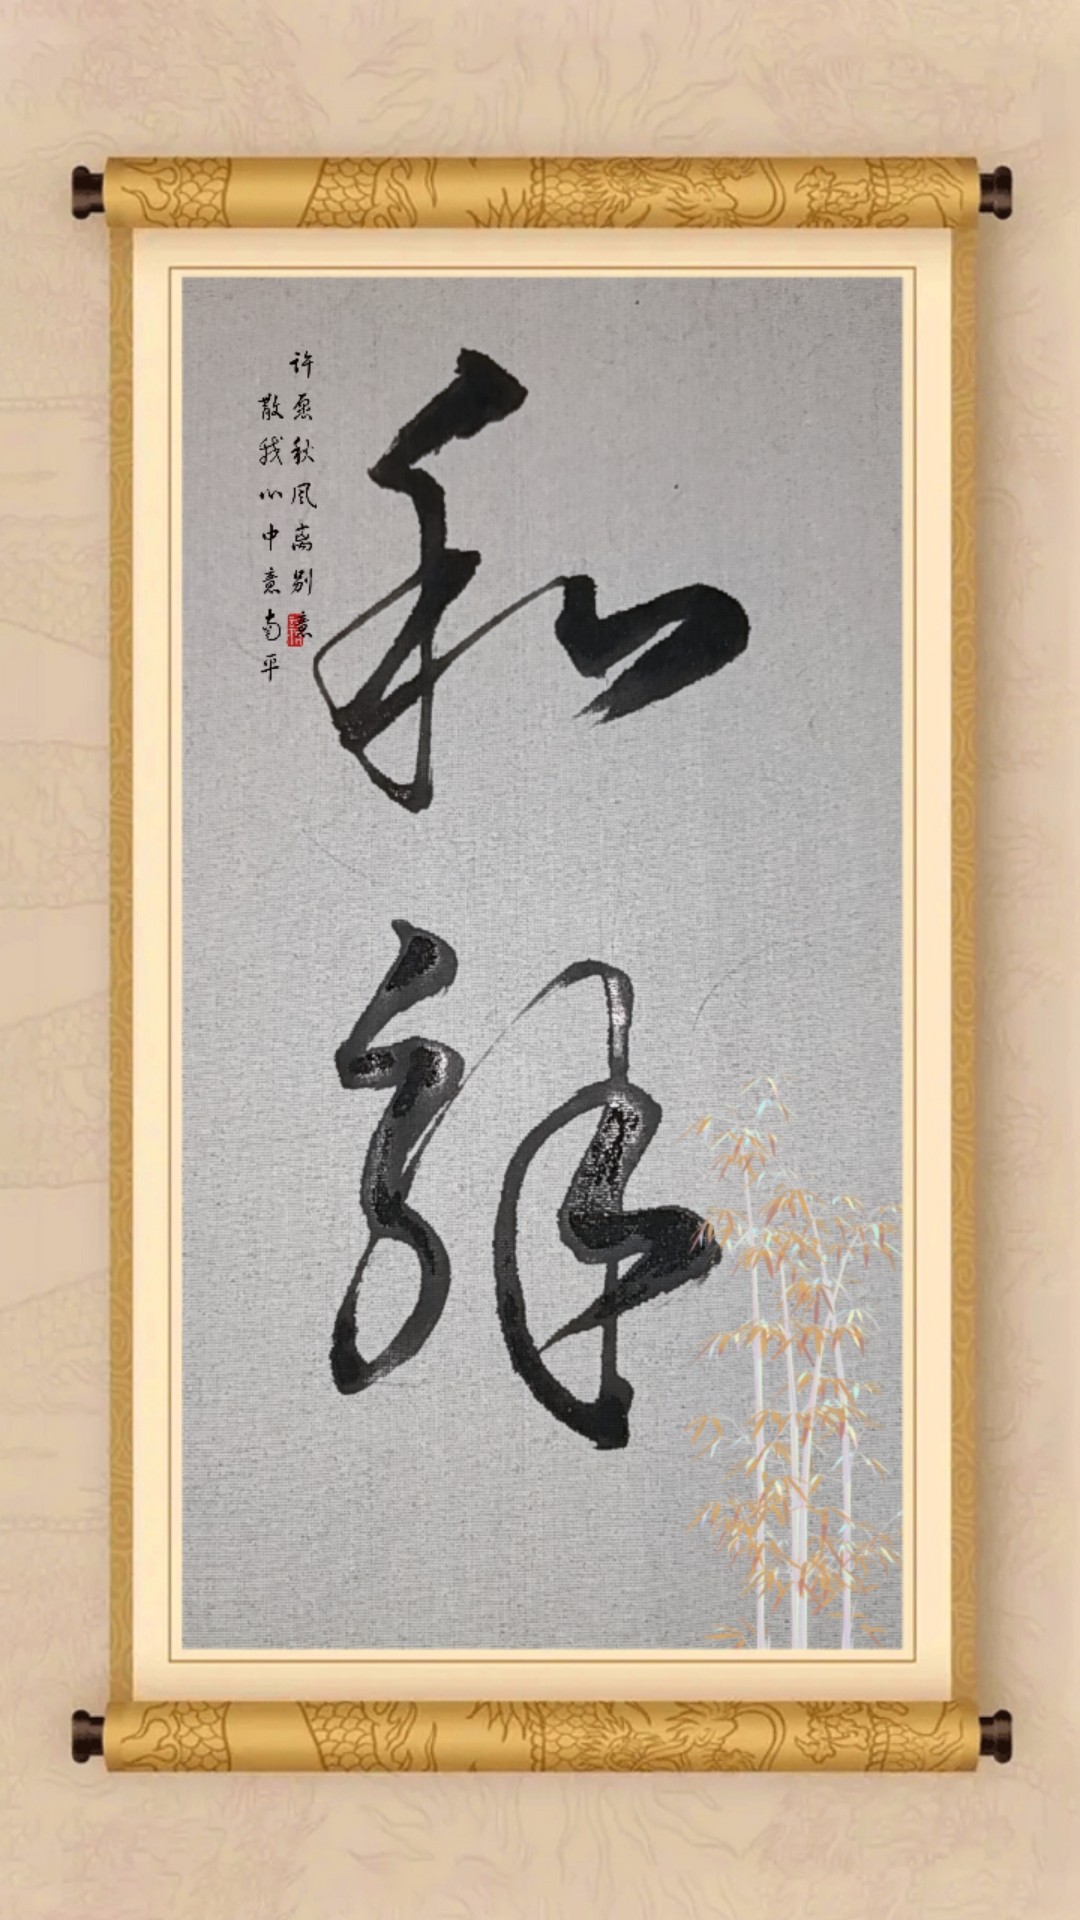 和解
许愿秋风离别意
散我心中意南平